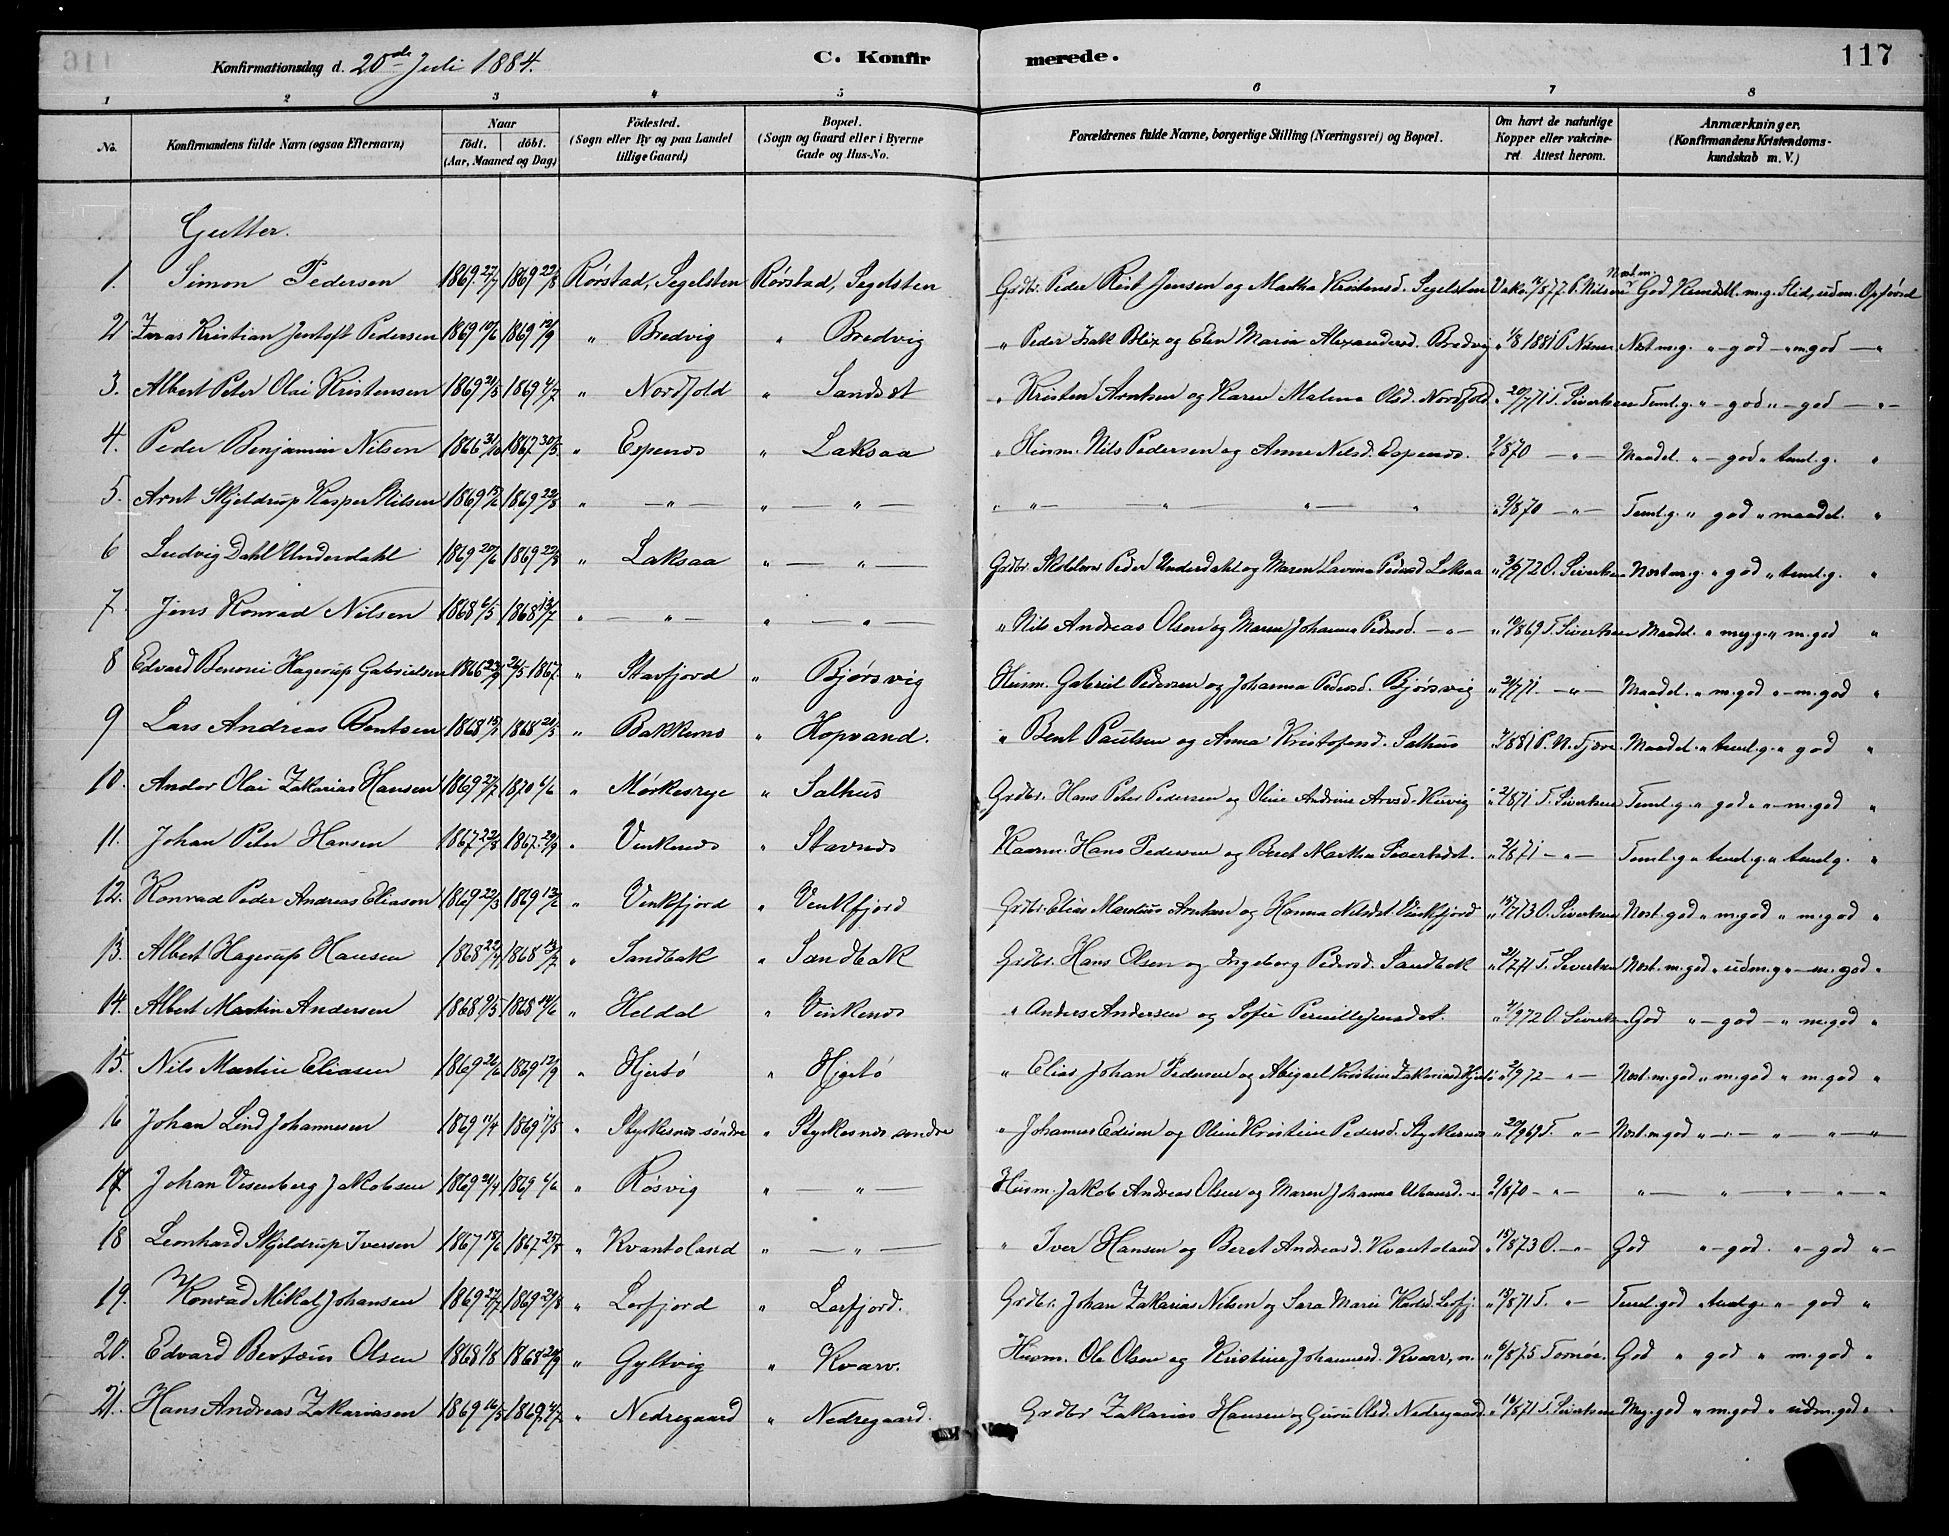 Konfirmationsdag d. 20de Juli 1884. C. Konfirmerede. 117
1 2 3 4 5 6 7 8
No. Konfirmandens fulde Navn (ogsaa Efternavn) Naar födt. döbt. (Aar, Maaned og Dag) Födested. (Sogn eller By og paa Landet tillige Gaard) Bopæl. (Sogn og Gaard eller i Byerne Gade og Hus-No. Forældrenes fulde Navne, borgerlige Stilling (Næringsvei) og Bopæl. Om havt de naturlige Kopper eller vakcineret. Attest herom. Anmærkninger. (Konfirmandens Kristendomskundskab m. V.)
Gutter.
1. Simon Pedersen 1869 27/7 1869 22/8 Rørstad, Segelsten Rørstad, Segelsten Grdbr. Peder Reist Jensen og Martha Kristensd. Segelsten Vakc. P. Nilsen Nost. m. God Kundsk. m. g. Flid, udm. Opførsel
2 Kristian Jentoft Pedersen 1869 10/6 1869 12/9 " Bredvig " Bredvig " Peder Isak Blix og Elen Maria Alexandersd. Bredvig " 1/8 1881 P. Nilsen Nost. m. g. " god " m. god "
3. Albert Peter Olai Kristensen 1869 21/5 1869 4/7 " Nordfold " Sandset " Kristen Arntsen og Karen Malena Olsd. Nordfold " 20/7 71 T. Sivertsen Teml. g. " god " god "
4. Peder Benjamin Nilsen 1866 31/10 1867 30/5 " Espenes " Laksaa " Husm. Nils Pedersen og Anne Nilsd. Espenes. 870 " Maadel. " god " teml. g. "
5. Arnt Skjeldrup Kasper Nilsen 1869 1869 22/8 " " " " " " " " " 9/870 " Teml. g. " god " maadel. "
6 Ludvig Dahl Underdahl 1869 20/6 1869 22/8 " Laksaa " " Grdbr. Skolelærer Peder Underdahl og Maren Lavina Pedersd. Laksaa " 72 O. Sivertsen Nost. m. g. " god " teml. g. "
7. Jens Konrad Nilsen 1868 6/5 1868 13/7 " " " " " Nils Andreas Olsen og Maren Johanna Pedersd. " " 10/869 T. Sivertsen Maadel. " meg. g. " m. god "
8 Edvard Benoni Hagerup Gabrielsen 1866 26/5 1867. " Stavfjord " Bjørsvig Husm. Gabriel Pedersen og Johanna Pedersd. Bjørsvig " 21/7 71 " Maadel. " m. god " m. god "
9 Lars Andreas Bentsen 1868 1868 21/5 " Bakkenes " Hopvand. " Bent Paulsen og Anna Kristofersd. Salhus " 881 P. N. Maadel. " teml. g. " god "
10. Andor Olai Zakarias Hansen 1869 27/7 1870 6/6 " Mørkesvye " Salhus Grdbr. Hans Peter Pedersen og Oline Andrine " 2/871 T. Sivertsen Teml. g. " god " m. god "
11. Johan Peter Hansen 1867 22/8 1867. 29/9 " Vinkenes " Stavnes Hans Pedersen og Beret Martha Sivertsdt. " 2/871 " Teml. g. " teml. g. " teml. g. "
12. Konrad Peder Andreas Eliasen 1869 22/3 1869 13/6 " Vinkfjord " Vinkfjord Grdbr. Elias Martinus Arntsen og Hanna Nilsdt. Vinkfjord " 15/7 73 O. Sivertsen Nost. god " m. god " m. god "
13. Albert Hagerup Hansen 1868 22/4 1868 13/7 " Sandbak " Sandbak Grdbr. Hans Olsen og Ingeborg Pedersd. Sandbak " 21/7 71 T. Sivertsen Nost. m. god " udm. g. " m. god "
14. Albert Martin Andersen 1868 9/5 1868 14/6 " Heldal " Vinkenes " Anders Andersen og Sofie Pernille Jensdt. " 972 O. Sivertsen God " god " m. god "
15. Nils Martin Eliasen 1869 26/6 1869 12/9 " Hjertø " Hjertø " Elias Johan Pedersen og Abigael Kristine Zakariasd. Hjertø " 2/972 " Nost. m. god " m. god " m. god "
16 Johan Lind Johannesen 1869 11/4 1869 17/5 " Styrkesnes søndre " Styrkesnes søndre " Johannes Edism og Oline Kristine Pedersd. Styrkesnes " 20/969 T. " Nost. m. god " " " "
17. Johan Vesenberg Jakobsen 1869 21/4 1869 6/6 " Røsvig " " Husm. Jakob Andreas Olsen og Maren Johanna " 2/870 " " " " "
18 Leonhard Skjeldrup Iversen 1867 18/6 1867 25/8 " Kvantoland " " " Iver Hansen og Beret Andreasd. Kvantoland " 15/873 O. " God " god. " god "
19. Konrad Mikal Johansen 1869 27/7 1869 29/8 " Lerfjord " Lerfjord. Grdbr. Johan Zakarias Nilsen og Sara Marie Karlsd. Lerfj. " 18/871 T. " Teml. god " teml. g. " god "
20. Edvard Berteus Olsen 1868 1/8 1868 20/9 " Gyltvig " Kvarv. Husm. Ole Olsen og Kristine Johannesd. Kvarv, " 6/875 Tornøe. God " god " m. god "
21. Hans Andreas Zakariasen 1869 16/5 1869 4/7 " Nedregaard " Nedregaard. Grdbr Zakarias Hansen og Guru Olsd. Nedregaard " 871 T. Sivertsen Meg. god " m. god " udm. god "